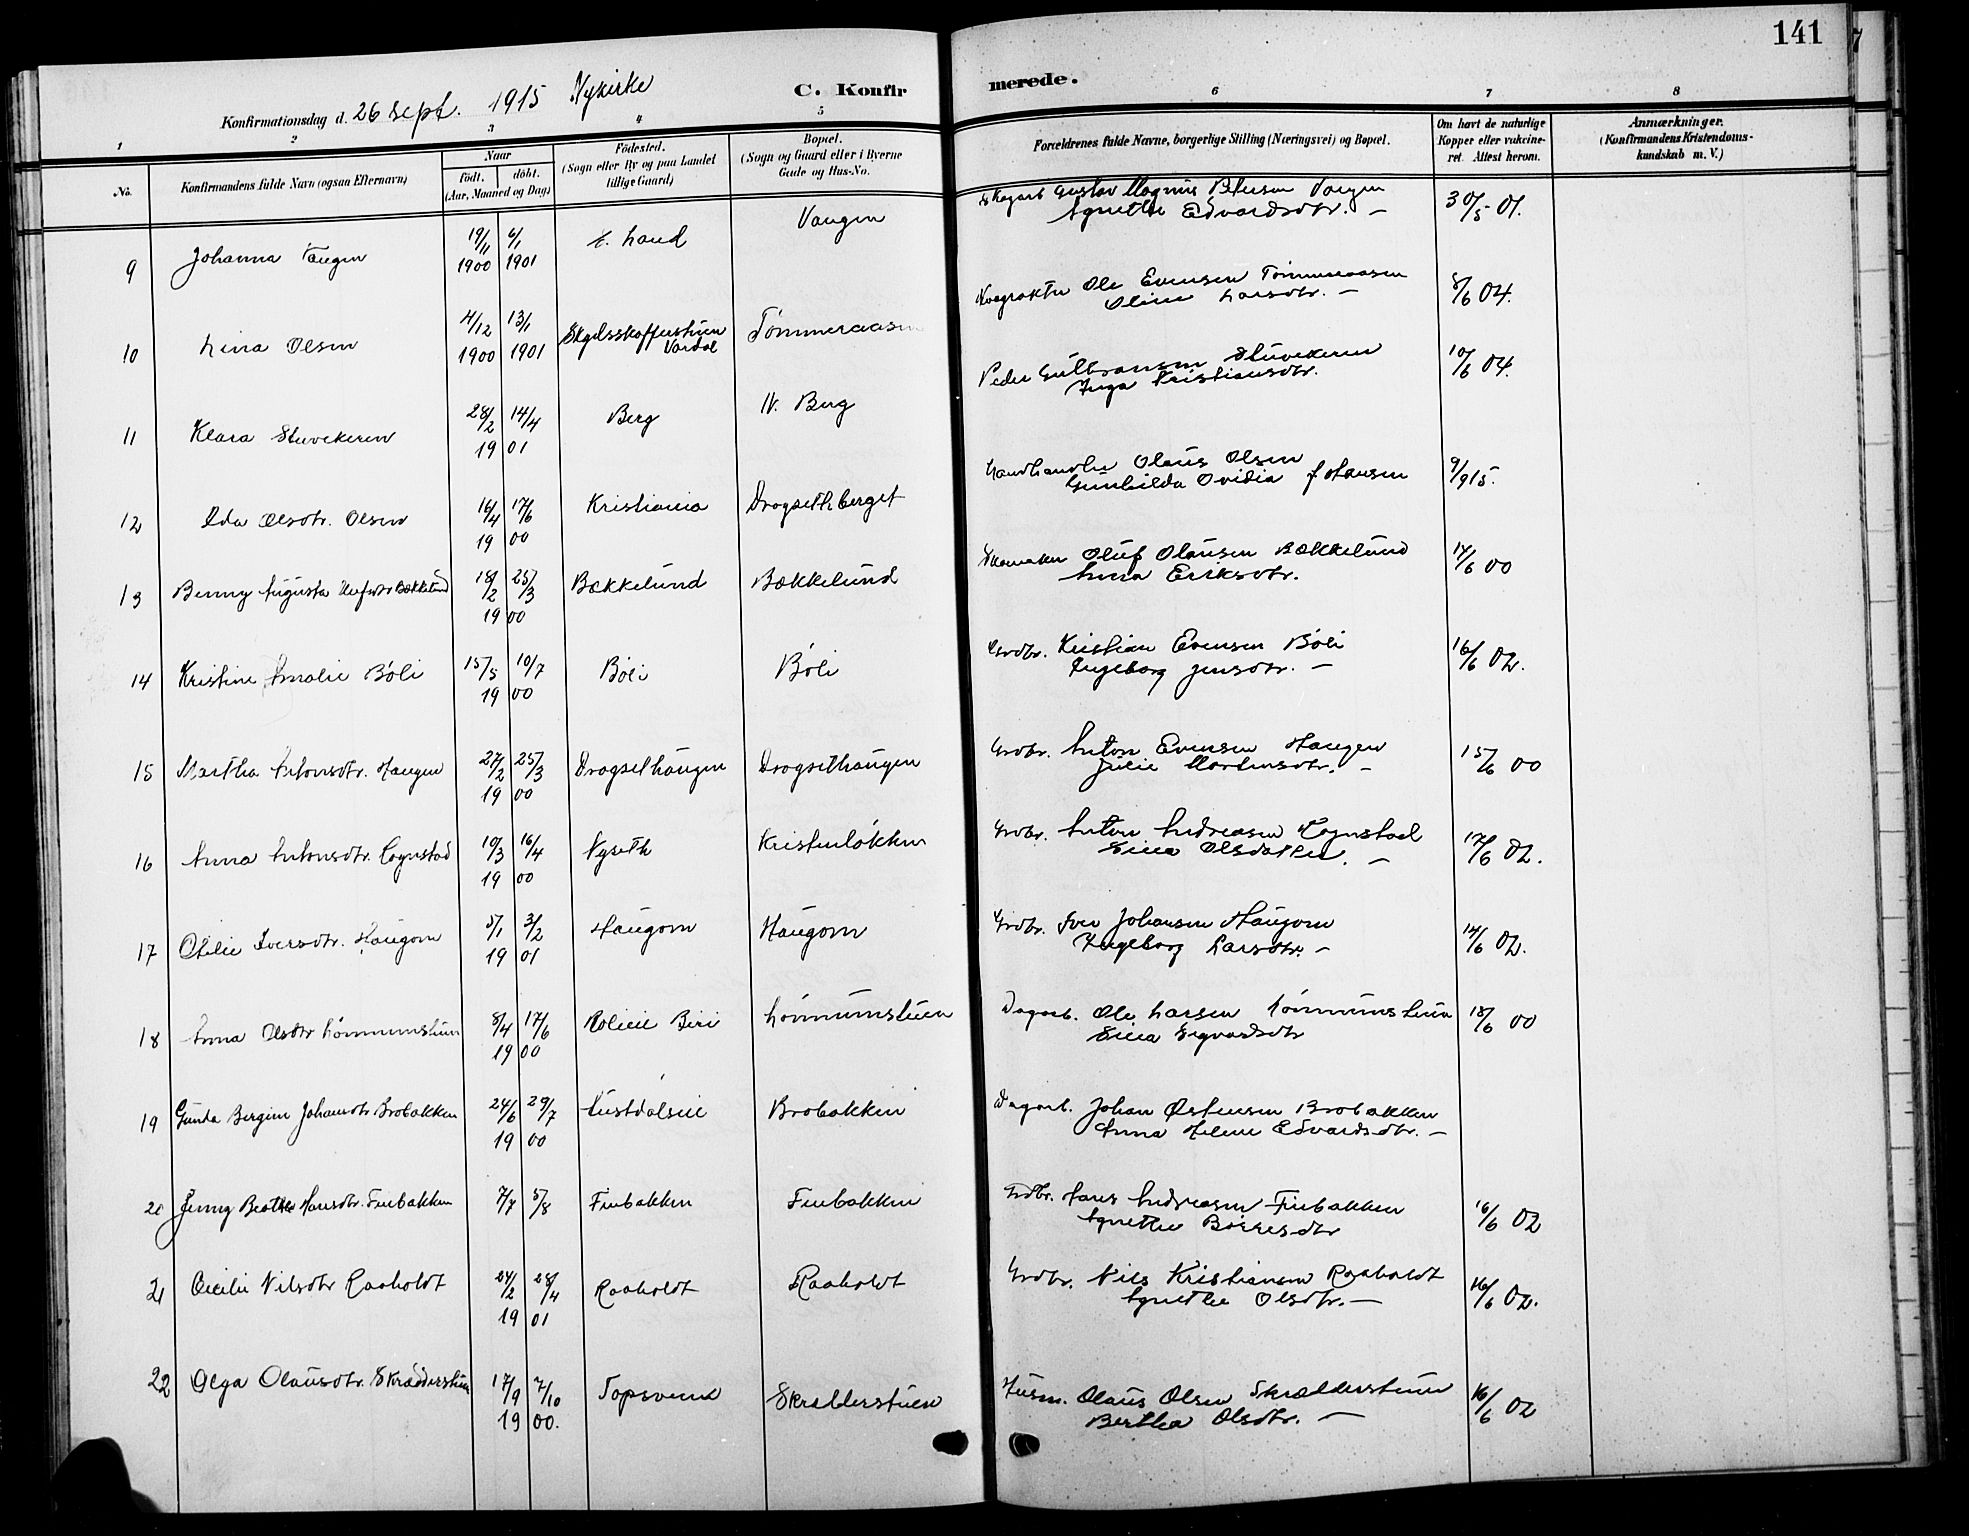 141
Konfirmationsdag d. 26 sept. 1915 Nykirke
C. Konfirmerede.
1 2 3 4 5 6 7 8
No.
Konfirmandens fulde Navn (ogsaa Efternavn)
Naar
födt. döbt.
(Aar, Maaned og Dag)
Födested.
(Sogn eller By og paa Landet
tillige Gaard)
Bopæl.
(Sogn og Gaard eller i Byerne
Gade og Hus-No.
Forældrenes fulde Navne, borgerlige Stilling (Næringsvei) og Bopæl.
Om havt de naturlige
Kopper eller vakcine-
ret. Attest herom.
Anmærkninger.
(Konfirmandens Kristendoms-
kundskab m. V.)
9 Johanna 19/11 1900 6/1 1901 Land Gustav Magnus 30/5 01.
Agnethe Edvardsdtr. –
10 Lina Olsen 4/12 1900 13/1 1901 Vardal Tømmeraasen Ole Evensen Tømmeraasen 8/6 04.
Oline Larsdtr. –
11 Klara Stuvekeren 28/2 14/4 1901 Berg N. Berg Peder Gulbransen Stuvekeren 10/6 04.
Inga Kristiansdtr.
12 Ida Olsdtr. Olsen 16/4 17/6 1900 Kristiania Dragsethberget Landhandler Olaus Olsen 9/9 15.
Gunhilda Ovidia f. Hansen
13 Benny Augusta Olufsdtr Bækkelund 18/2 25/3 1900 Bækkelund Bækkelund Oluf Olausen Bækkelund 14/6 00
Anna Eriksdtr.
14 Kristine Amalie Böli 15/5 10/7 1900 Böli Böli Grdbr. Kristian Evensen Böli 16/6 02.
Ingeborg Jensdtr. –
15 Martha Antonsdtr. Haugen 27/2 25/3 1900 Dragsethaugen Dragsethaugen Grdbr. Anton Evensen Haugen 15/6 00
Julie Mortensdtr. –
16 Anna Antonsdtr. 10/3 16/4 1900 Nyseth Kristenløkken Grdbr. Anton Andreasen 17/6 02.
Olsdatter. –
17 Othilie Iversdtr. Haugom 5/1 3/2 1901 Haugom Haugom Grdbr. Iver Johansen Haugom 14/6 02.
Ingeborg Larsdtr. –
18 Anna Olsdtr Lönnumstuen 8/4 17/6 1900 Biri Lönnumstuen Dagarb. Ole Larsen Lönnumstuen 18/6 00
Sigvardsdtr
19 Gunda Bergine Johansdtr Brobakken 24/6 29/7 1900 Brobakken Dagarb. Johan Østensen Brobakken
Anna Helene Edvardsdtr. –
20 Jenny Beathe Hansdtr. Finbakken 7/7 5/8 Finbakken Finbakken Grdbr. Hans Andreasen Finbakken 16/6 02
Agnethe Börresdtr
21 Cecilie Nilsdtr Raaholdt 24/2 28/4 1901 Raaholdt Raaholdt Grdbr. Nils Kristiansen Raaholdt 16/6 02.
Agnethe Olsdtr. –
22 Olga Olausdtr. Skrædderstuen 17/9 7/10 1900. Topsveen Skrædderstuen Husm. Olaus Olsen Skrædderstuen 16/6 02
Berthea Olsdtr. –